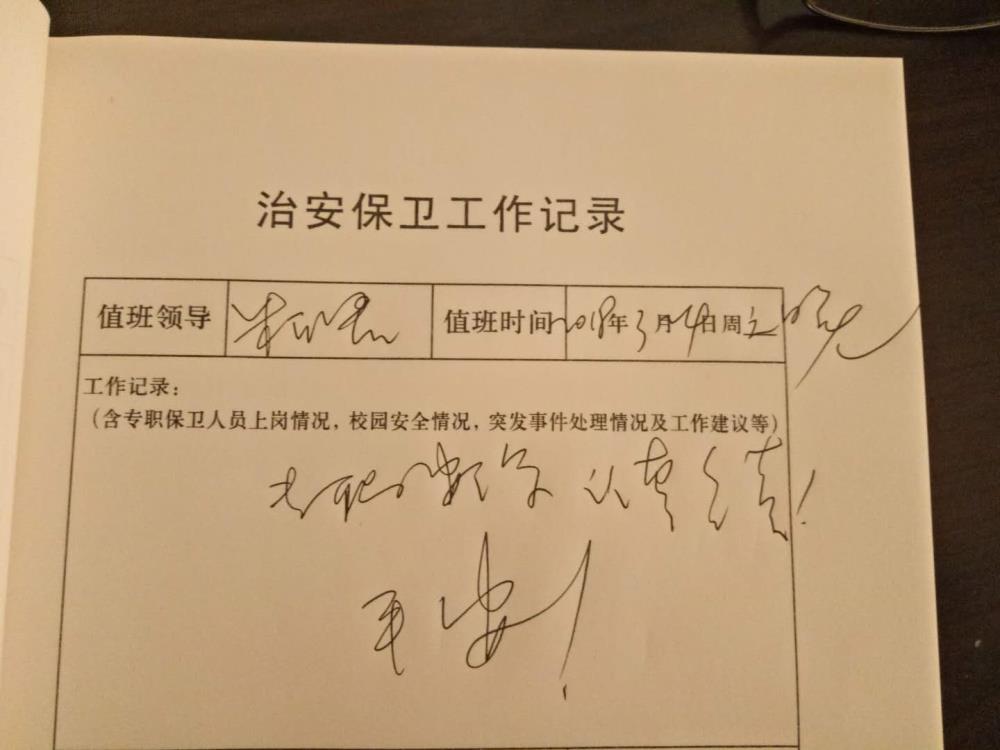 治安保卫工作记录
值班领导 值班时间 2018年3月14日周三晚
工作记录:
(含专职保卫人员上岗情况,校园安全情况,突发事件处理情况及工作建议等)
专职保安 认真负责!
平安!